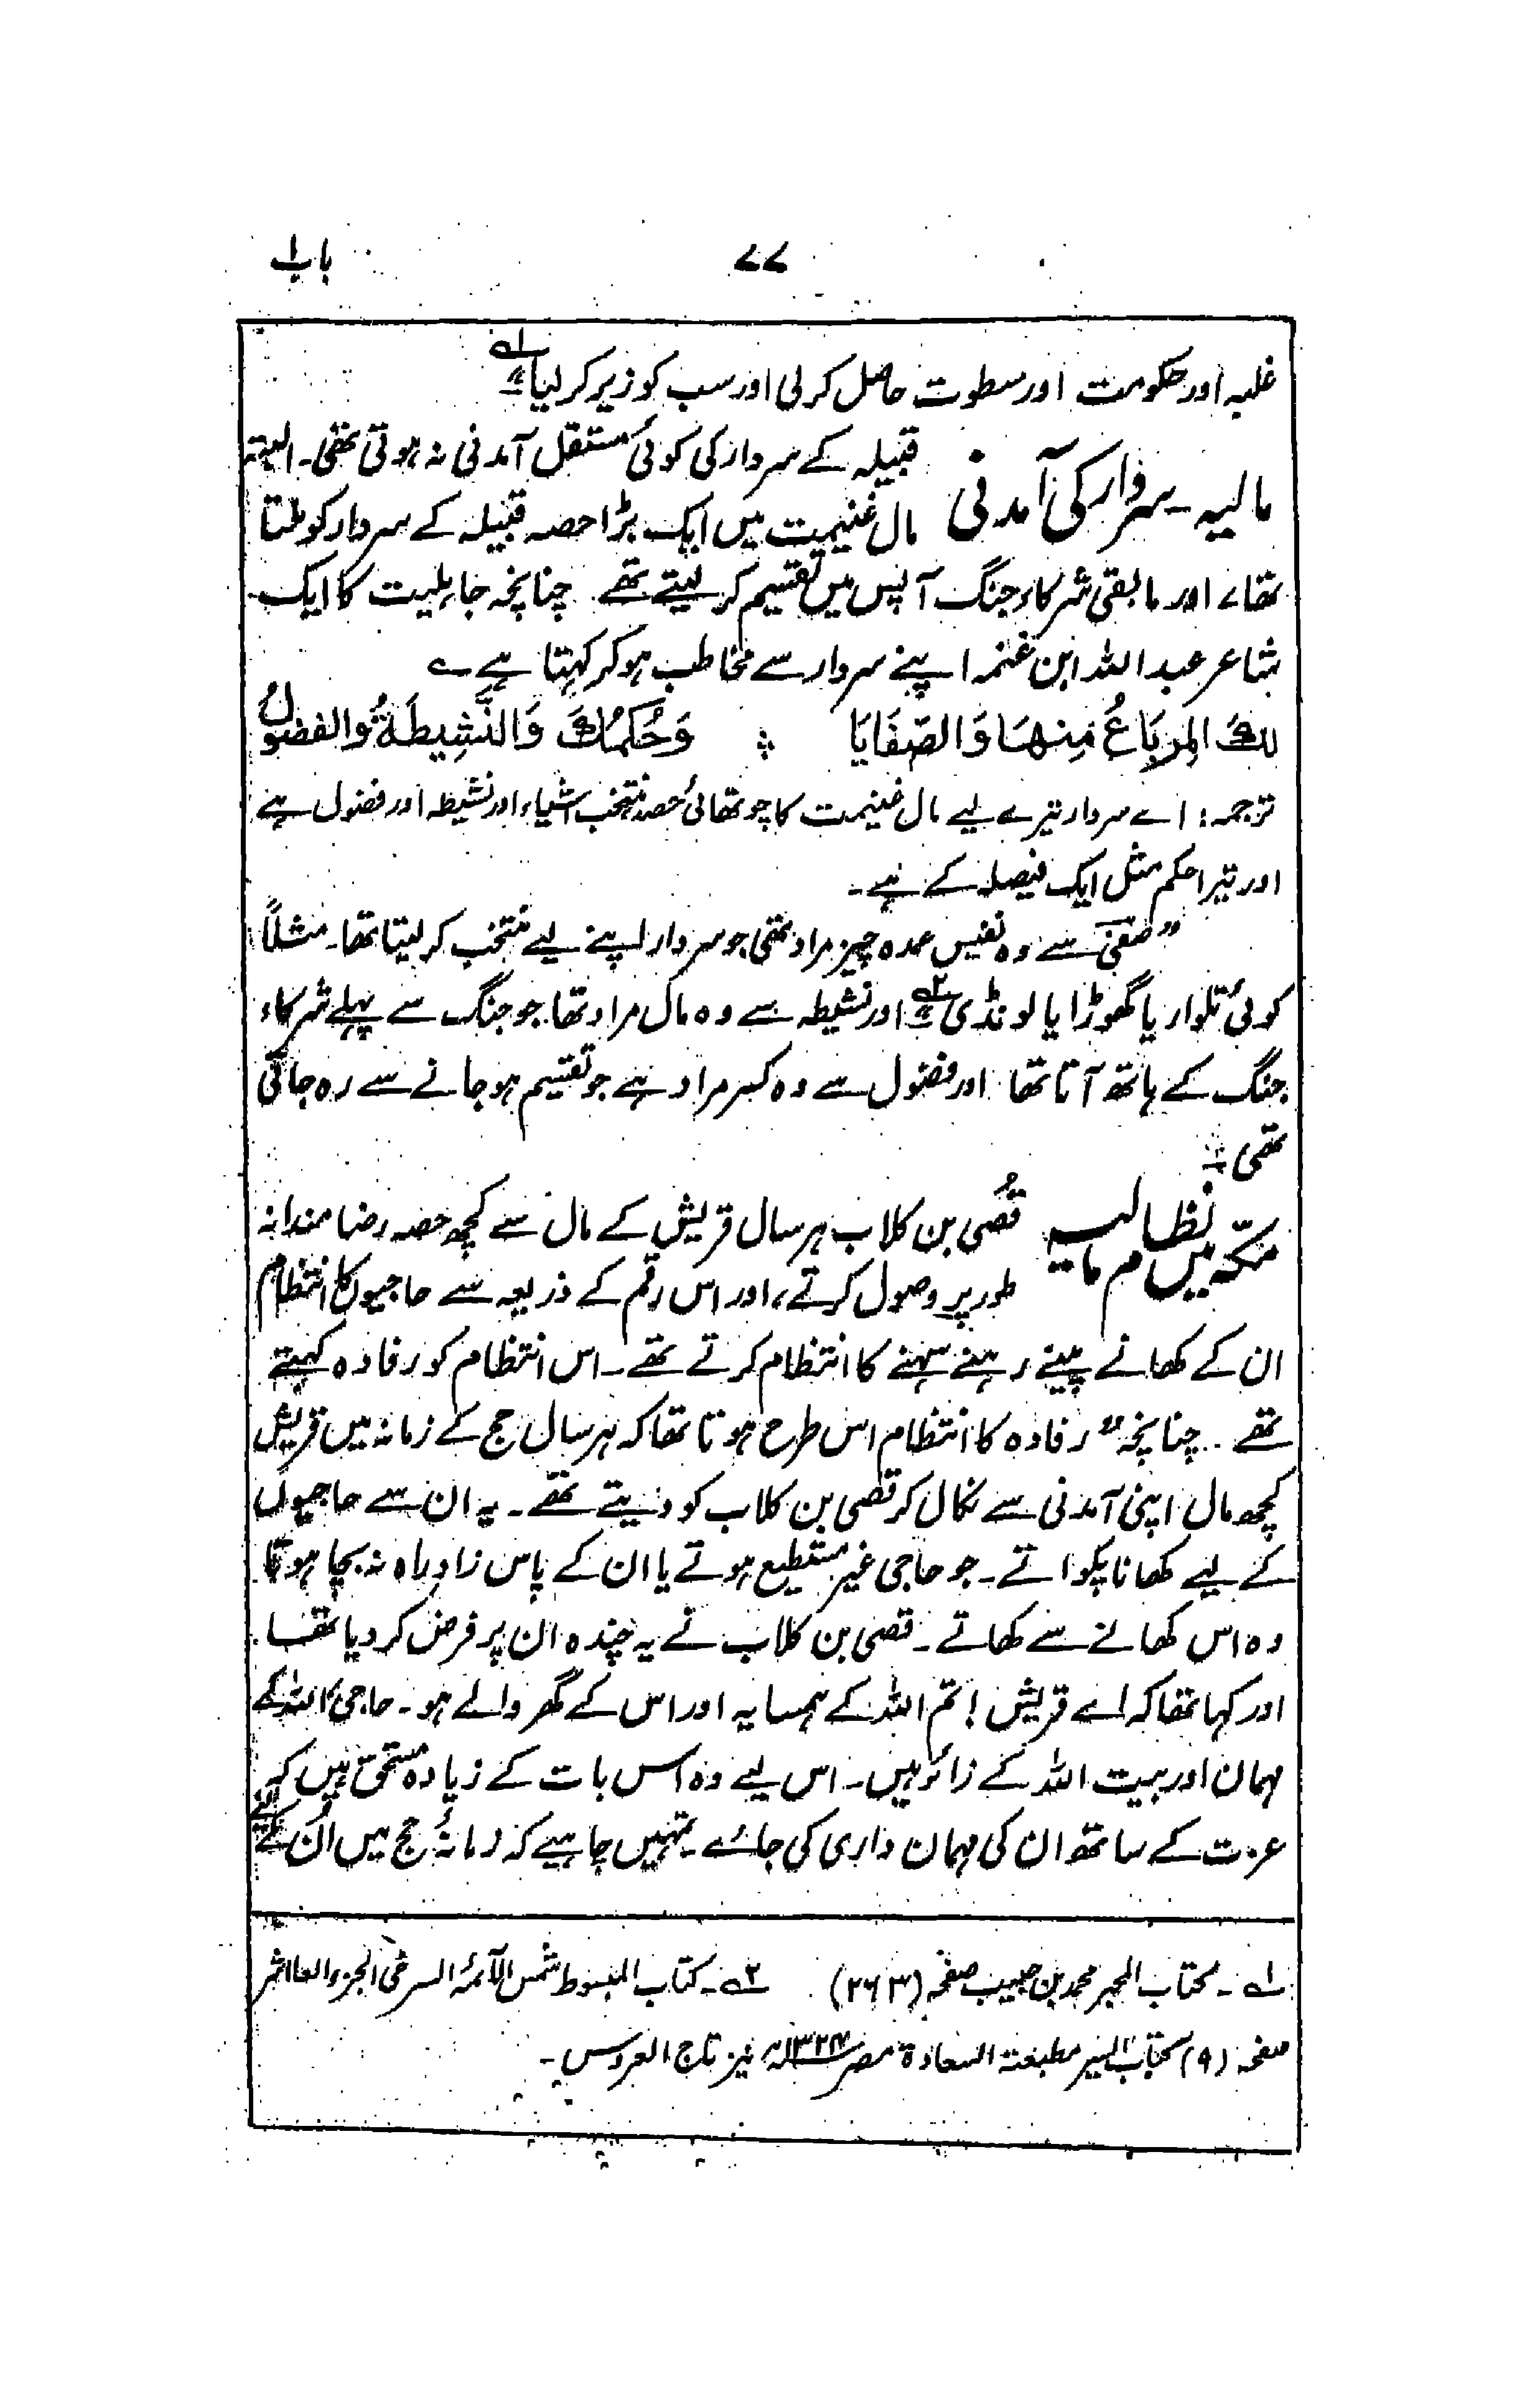 باب ۱
۷۷
غلبہ اور حکومت اور سطوت حاصل کر لی اور سب کو زیر کر لیا لے
مالیہ ۔ سردار کی آمدنی
قبیلہ کے سردار کی کوئی مستقل آمدنی نہ ہوتی تھی۔ البتہ
مال غنیمت میں ایک بڑا حصہ قبیلہ کے سردار کو ملتا
تھا، اور مابقی شرکاء جنگ آپس میں تقسیم کر لیتے تھے۔ چنانچہ جاہلیت کا ایک
شاعر عبداللہ ابن غنمہ اپنے سردار سے مخاطب ہو کر کہتا ہے ؎
لَكَ المِربَاعُ مِنهَا وَ الصَّفَايَا ؞ وَحُكمُكَ وَالنَّشِيطَةُ والفضولُ
ترجمہ: اے سردار تیرے لیے مال غنیمت کا چوتھائی حصہ منتخب اشیاء اور نشیطہ اور فضول ہے
اور تیرا حکم مثل ایک فیصلہ کے ہے۔
"صفیّ سے وہ نفیس عمدہ چیز مراد تھی جو سردار اپنے لیے منتخب کر لیتا تھا۔ مثلاً
کوئی تلوار یا گھوڑا یا لونڈی ۲ے اور نشیطہ سے وہ مال مراد تھا جو جنگ سے پہلے شرکاء
جنگ کے ہاتھ آتا تھا اور فضول سے وہ کسر مراد ہے جو تقسیم ہو جانے سے رہ جاتی
تھی۔
مکّہ میں نظام مالیہ
قُصَی بن کلاب ہر سال قریش کے مال سے کچھ حصہ رضا مندانہ
طور پر وصول کرتے، اور اس رقم کے ذریعہ سے حاجیوں کا انتظام
ان کے کھانے پینے رہنے سہنے کا انتظام کرتے تھے۔ اس انتظام کو رفادہ کہتے
تھے۔ چنانچہ "رفادہ کا انتظام اس طرح ہوتا تھا کہ ہر سال حج کے زمانہ میں قریش
کچھ مال اپنی آمدنی سے نکال کر قصی بن کلاب کو دیتے تھے۔ یہ ان سے حاجیوں
کے لیے کھانا پکواتے۔ جو حاجی غیر مستطیع ہوتے یا ان کے پاس زادِ راہ نہ بچا ہوتا
وہ اس کھانے سے کھاتے۔ قصی بن کلاب نے یہ چندہ ان پر فرض کر دیا تھا
اور کہا تھا کہ اے قریش! تم اللہ کے ہمسایہ اور اس کے گھر والے ہو۔ حاجی اللہ کے
مہمان اور بیت اللہ کے زائر ہیں۔ اس لیے وہ اس بات کے زیادہ مستحق ہیں کہ
عزت کے ساتھ ان کی مہمان داری کی جائے۔ تمہیں چاہیے کہ زمانۂ حج میں اُن کے لئے
۱ے۔ کتاب المحبر محمد بن حبیب صفحہ (۲۶۳) ۲ے۔ کتاب المبسوط شمس الآئمۃ السرخی الجزء العاشر
صفحہ (۹) کتاب السیر مطبعتہ السعادة مصر ۱۳۲۴ھ نیز تاج العروس۔